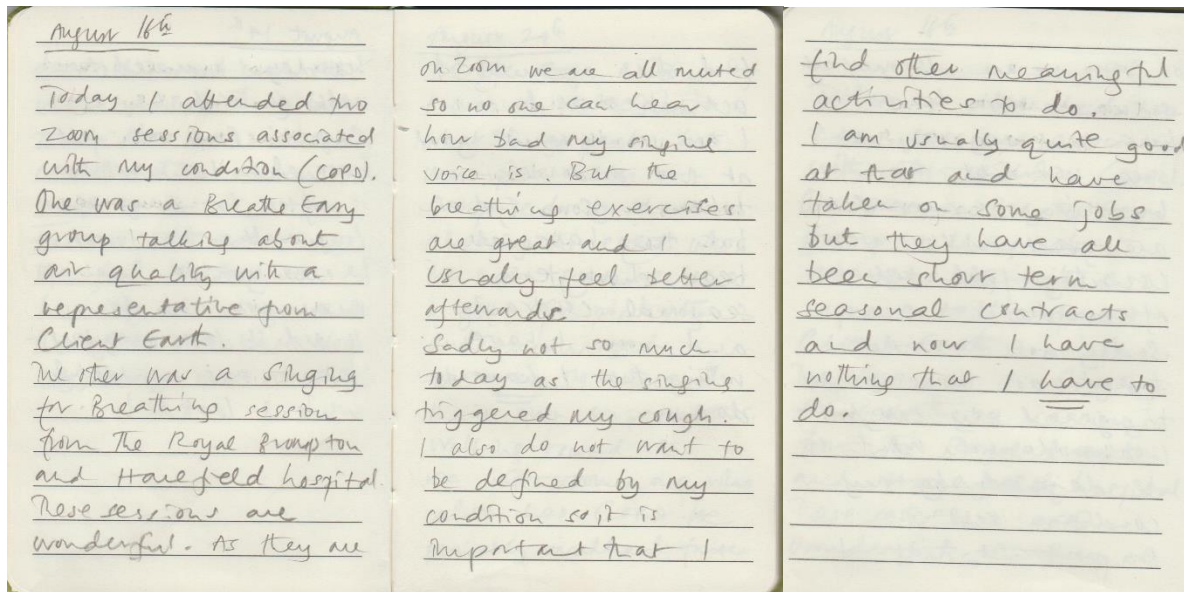 August 16th
Today I attended two
Zoom sessions associated
with my condition (COPD).
One was a Breathe Easy
group talking about
air quality with a
representative from
Client Earth.
The other was a singing
for Breathing session
from The Royal Brompton
and Harefield hospital.
These sessions are
wonderful. As they are
on Zoom we are all muted
so no one can hear
how bad my singing
voice is. But the
breathing exercises
are great and I
usually feel better
afterwards.
Sadly not so much
today as the singing
triggered my cough.
I also do not want to
be defined by my
condition so it is
important that I
find other meaningful
activities to do.
I am usually quite good
at that and have
taken on some jobs
but they have all
been short term
seasonal contracts
and now I have
nothing that I have to
do.